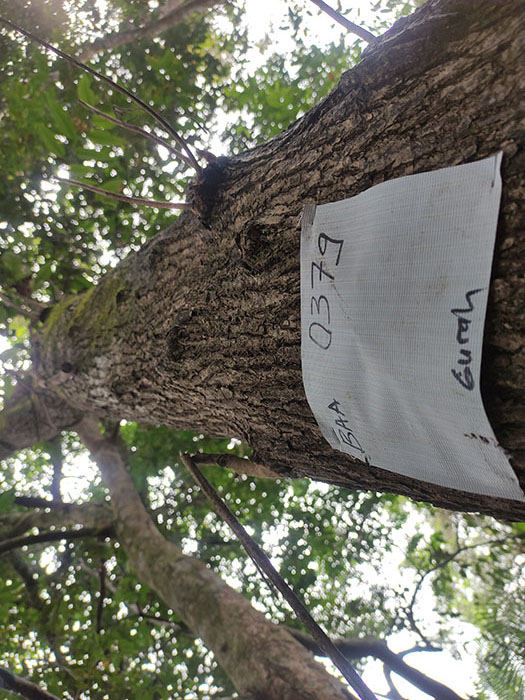 BAA 0379
Gurah